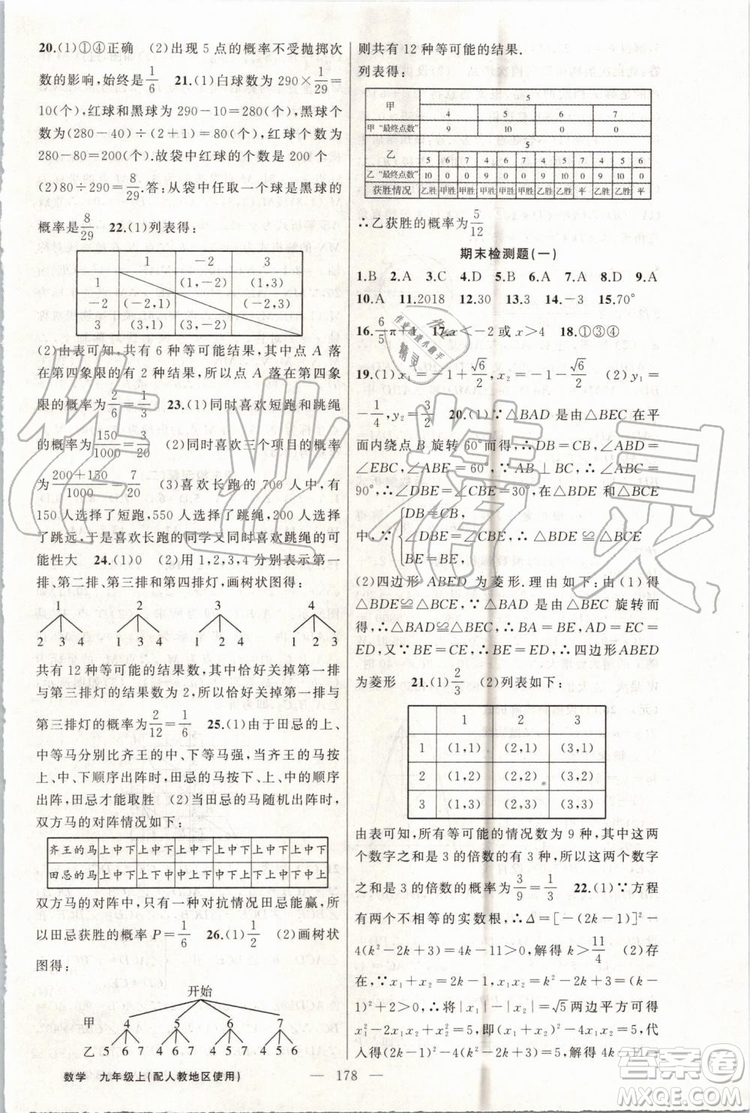 20.(1)①④正确　(2)出现 5 点的概率不受抛掷次
数的影响,始终是1/6　21.(1)白球数为 290×1/29=
10(个),红球和黑球为 290-10=280(个),黑球个
数为(280-40)÷(2+1)=80(个),红球个数为
280-80=200(个).故袋中红球的个数为 200 个
(2)80÷290=8/29.答:从袋中任取一个球是黑球的
概率是8/29　22.(1)列表得:
1　-2　3
1　(1,-2)　(1,3)
-2　(-2,1)　(-2,3)
3　(3,1)　(3,-2)
(2)由表可知,共有 6 种等可能结果,其中点 A 落
在第四象限的有 2 种结果,所以点 A 落在第四象
限的概率为2/6=1/3　23.(1)同时喜欢短跑和跳绳
的概率为150/1000=3/20　(2)同时喜欢三个项目的概率
为(200+150)/1000=7/20　(3)喜欢长跑的 700 人中,有
150 人选择了短跑,550 人选择了跳绳,200 人选择
了跳远,于是喜欢长跑的同学又同时喜欢跳绳的可
能性大　24.(1)0　(2)用 1,2,3,4 分别表示第一
排、第二排、第三排和第四排灯,画树状图得:
1　2　3　4
2 3 4　1 3 4　1 2 4　1 2 3
共有 12 种等可能的结果数,其中恰好关掉第一排
与第三排灯的结果数为 2,所以恰好关掉第一排与
第三排灯的概率为2/12=1/6　25.(1)由于田忌的上、
中等马分别比齐王的中、下等马强,当齐王的马按
上、中、下顺序出阵时,田忌的马按下、上、中的顺序
出阵,田忌才能取胜　(2)当田忌的马随机出阵时,
双方马的对阵情况如下:
齐王的马 上中下 上中下 上中下 上中下 上中下 上中下
田忌的马 上中下 上下中 中上下 中下上 下上中 下中上
双方马的对阵中,只有一种对抗情况田忌能赢,所
以田忌获胜的概率 P=1/6　26.(1)1/2　(2)画树状
图得:
开始
甲　4　5　6　7
乙 5 6 7　4 6 7　4 5 7　4 5 6
则共有 12 种等可能的结果.
列表得:
甲　5
4　6　7　8
甲“最终点数”　9　10　0　0
乙　5
5 6 7 4 6 7 4 5 7 4 5 6
乙“最终点数”
获胜情况　乙胜 甲胜 甲胜
∴乙获胜的概率为5/12
期末检测题(一)
1.B　2.A　3.C　4.D　5.B　6.A　7.D　8.D　9.A
10.A　11.2018　12.30　13.30　14.-3　15.70°
16.6/5π　17.x<-2或x>4　18.①③④
19.(1)x₁=1-√6/2,x₂=1+√6/2　(2)y₁=
-1/4,y₂=3/2　20.(1)∵△BAD 是由△BEC 在平
面内绕点 B 旋转 60°而得,∴DB=CB,∠ABD=
∠EBC,∠ABE=60°,∵AB⊥BC,∴∠ABC=
90°,∴∠DBE=∠CBE=30°,在△BDE 和△BCE
中,∵{DB=CB,
∠DBE=∠CBE,
BE=BE,
∴△BDE≌△BCE
(2)四边形 ABED 为菱形.理由如下:由(1)得
△BDE≌△BCE,∵△BAD 由△BEC 旋转而
得,∴△BAD≌△BEC,∴BA=BE,AD=EC=
ED,又∵BE=CE,∴BA=BE=ED=AD,∴四边形 ABED
为菱形　21.(1)2/3　(2)列表如下:
1　2　3
1　(1,1)　(2,1)　(3,1)
2　(1,2)　(2,2)　(3,2)
3　(1,3)　(2,3)　(3,3)
由表可知,所有等可能的情况数为 9 种,其中这两
个数字之和是 3 的倍数的有 3 种,所以这两个数字
之和是 3 的倍数的概率为3/9=1/3　22.(1)∵方程
有两个不相等的实数根,∴Δ=[-(2k-1)]²-
4(k²-2k+3)=4k-11>0,解得 k>11/4　(2)存
在,∵x₁+x₂=2k-1,x₁x₂=k²-2k+3=(k-
1)²+2>0,∴将|x₁|-|x₂|=√5两边平方可得
x₁²-2x₁x₂+x₂²=5,即(x₁+x₂)²-4x₁x₂=5,代
入得(2k-1)²-4(k²-2k+3)=5,解得4k-11=
数学　九年级上(配人教地区使用)
178
作业精灵
答案卷